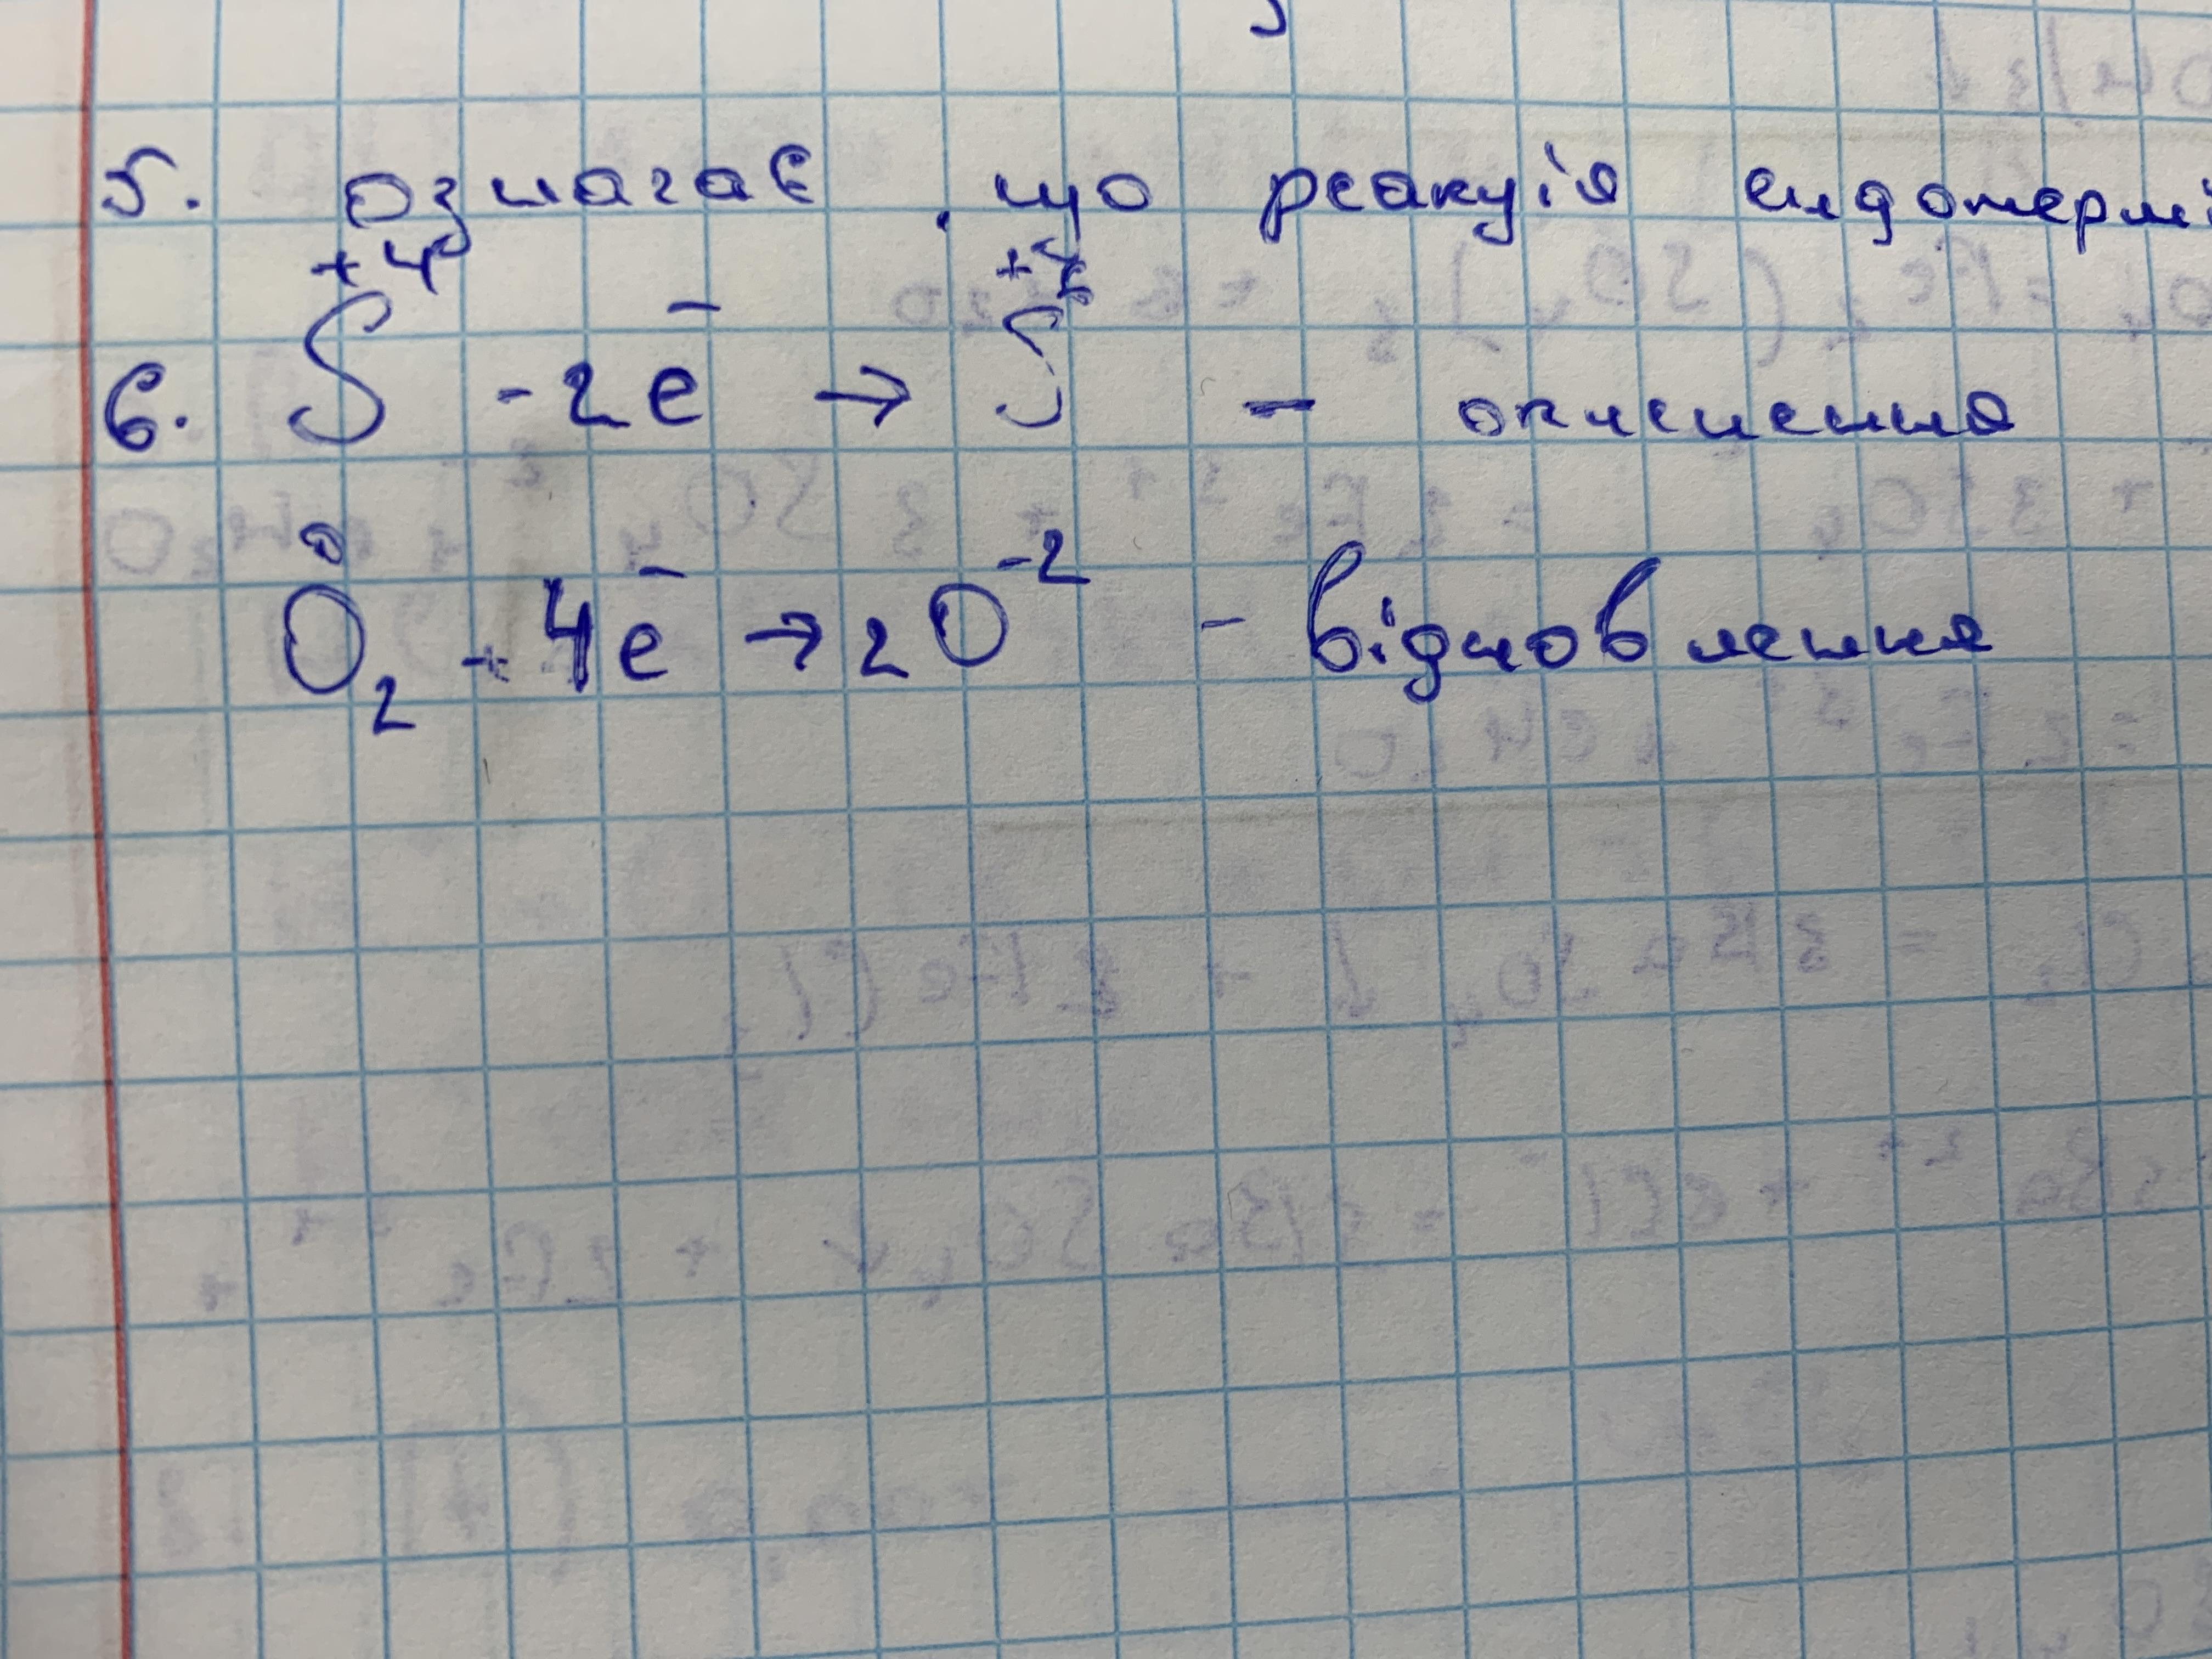 5. означає, що реакція ендотермі
6. S⁺⁴ - 2e⁻ → S⁺⁶ - окиснення
O₂⁰ + 4e⁻ → 2O⁻² - відновлення